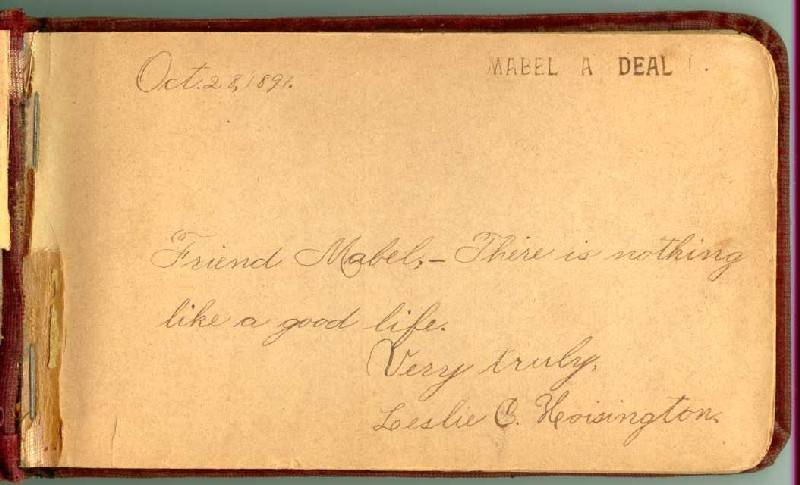 Oct. 28, 1891.
MABEL A DEAL
Friend Mabel,— There is nothing
like a good life.
Very truly,
Leslie C. Hoisington.